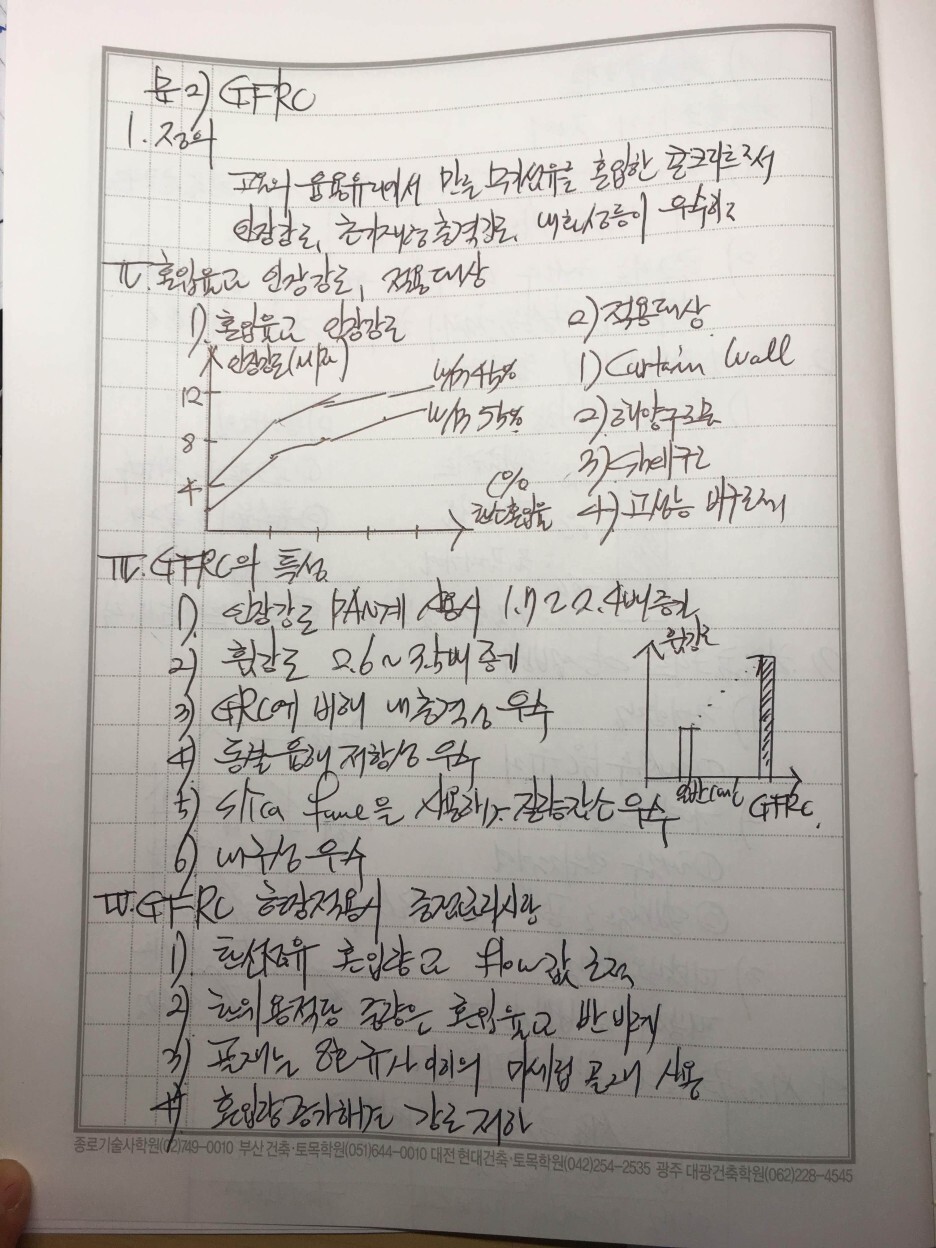 문2) GFRC
1. 정의
고온의 용융유리에서 만든 무기섬유를 혼입한 콘크리트로서
인장강도, 충격강도, 내화성능이 우수하고
II. 혼입율과 인장강도, 적용대상
1) 혼입율과 인장강도
2) 적용대상
인장강도(MPa)
W/B 45%
W/B 55%
12
8
4
(%)
혼입율
1) Curtain Wall
2) 해양구조물
3)
4) 고성능 바구조체
III. GFRC의 특성
1) 인장강도 PAN계 사용시 1.7~2.4배 증가
2) 휨강도 2.6~3.5배 증가
휨강도
3) GRC에 비해 내충격성 우수
4) 동결융해 저항성 우수
5) Silica fume을 사용하고 우수
일반conc
GFRC.
6) 내구성 우수
IV. GFRC 현장적용시 중점관리사항
1) 탄소섬유 혼입량과 flow값 조절
2) 단위용적당 중량은 혼입율과 반비례
3) 골재는 8호규사 이하의 미세립 골재 사용
4) 혼입량증가하면 강도 저하
종로기술사학원(02)749-0010 부산 건축·토목학원(051)644-0010 대전 현대건축·토목학원(042)254-2535 광주 대광건축학원(062)228-4545